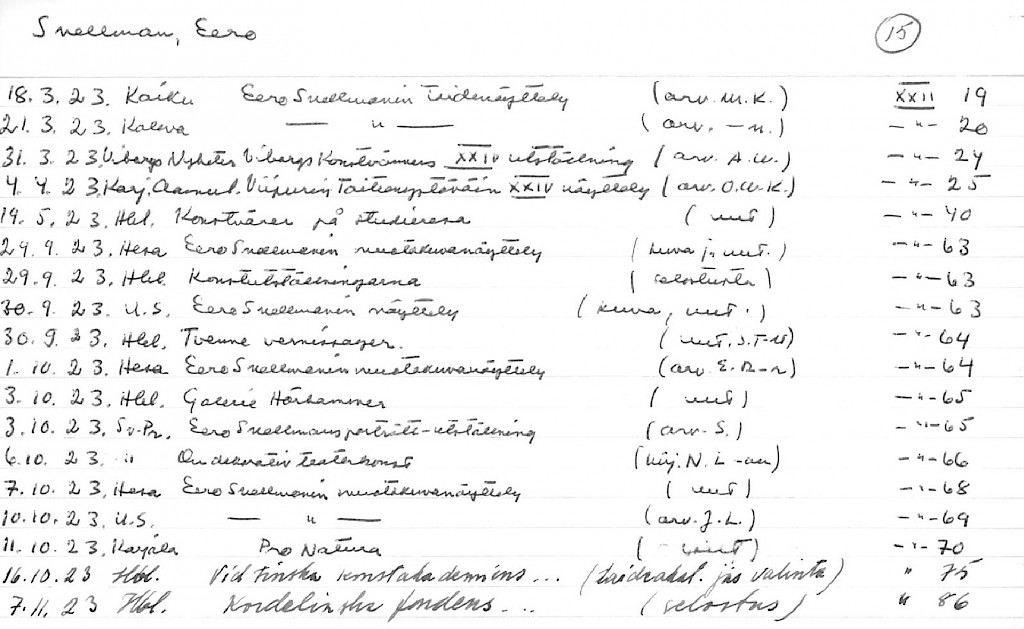 Snellman, Eero 15
18. 3. 23. Kaiku Eero Snellmanin taidenäyttely (arv. M.K.) XXII 19
21. 3. 23. Kaleva — " — (arv. -n.) - " - 20
31. 3. 23. Viborgs Nyheter Viborgs Konstvänners XXIV utställning (arv. A.W.) - " - 24
4. 4. 23. Karj. Aamul. Viipurin Taiteenystäväin XXIV näyttely (arv. O.W-K.) - " - 25
19. 5. 23. Hbl. Konstnärer på studieresa (uut) - " - 40
29. 9. 23. Hesa Eero Snellmanin muotokuvanäyttely (kuva ja uut.) - " - 63
29. 9. 23. Hbl. Konstutställningarna (selostusta) - " - 63
30. 9. 23. U.S. Eero Snellmanin näyttely (kuva, uut.) - " - 63
30. 9. 23. Hbl. Tvenne vernissager. (uut. S.T-) - " - 64
1. 10. 23. Hesa Eero Snellmanin muotokuvanäyttely (arv. E.R-r) - " - 64
3. 10. 23. Hbl. Galerie Hörhammer (uut) - " - 65
3. 10. 23. Sv-Pr. Eero Snellmans porträtt-utställning (arv. S.) - " - 65
6. 10. 23. " Om dekorativ teaterkonst (kirj. N. L-) - " - 66
7. 10. 23. Hesa Eero Snellmanin muotokuvanäyttely (uut) - " - 68
10. 10. 23. U.S. — " — (arv. J.L.) - " - 69
11. 10. 23. Karjala Pro Natura - " - 70
16. 10. 23 Hbl. Vid finska konstakademiens ... (taideakat. jäs valinta) " 75
7. 11. 23 Hbl. Kordelinska fondens ... (selostus) " 86